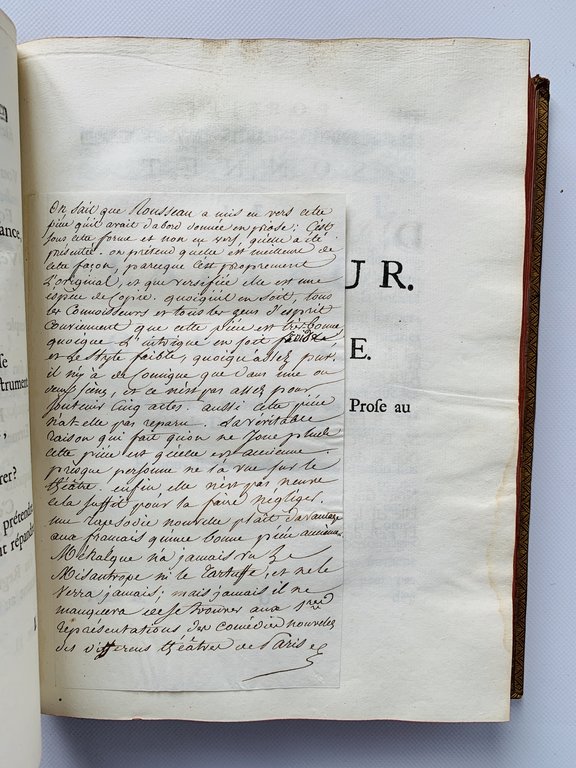 ance,
se
trument
rer?
prétendre
nt répandre
On sait que Rousseau a mis en vers cette
piéce qu'il avait d'abord donnée en prose; C'est
sous cette forme et non en vers, qu'elle a été
présentée. on prétend qu'elle est meilleure de
cette façon, parceque C'est proprement
L'original, et que versifiée elle est une
espèce de Copie. quoiqu'il en soit, tous
les Connoisseurs et tous les gens d'esprit
Conviennent que cette piéce est très-bonne,
quoique L'intrigue en soit
et Le Style faible, quoiqu'assez pur;
il n'y a de Comique que dans une ou
deux scenes, et ce n'est pas assez pour
soutenir Cinq actes. aussi cette piéce
n'at elle pas reparu. La véritable
raison qui fait qu'on ne Joue
cette piéce est qu'elle est ancienne.
presque personne ne l'a vue sur le
théâtre. enfin elle n'est pas neuve
cela suffit pour la faire négliger.
une rapsodie nouvelle plait davantage
aux français qu'une bonne piéce ancienne.
n'a jamais vu Le
Misantrope ni le Tartuffe, et ne le
verra jamais; mais jamais il ne
manquera de se trouver aux 1eres
représentations des comédies nouvelles
des differens théâtres de Paris
UR.
E.
Prose au